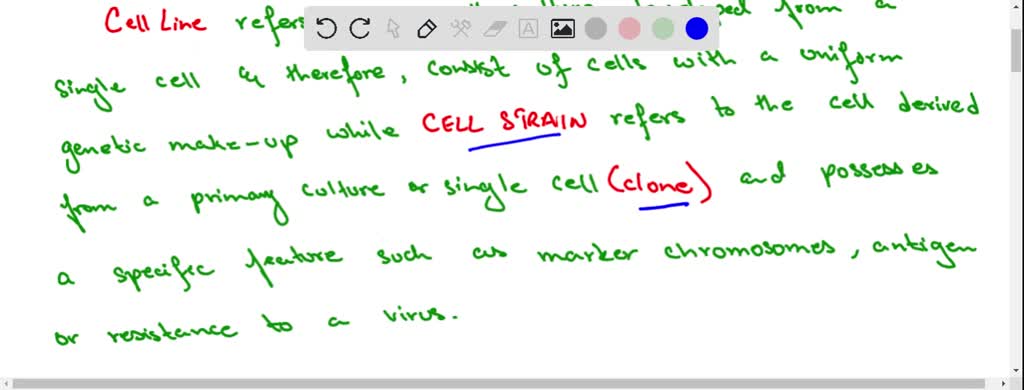 Cell Line refers from a
single cell & therefore, consist of cells with a uniform
genetic make-up while CELL STRAIN refers to the cell derived
from a primary culture or single cell (clone) and possesses
a specific feature such as marker chromosomes, antigen
or resistance to a virus.